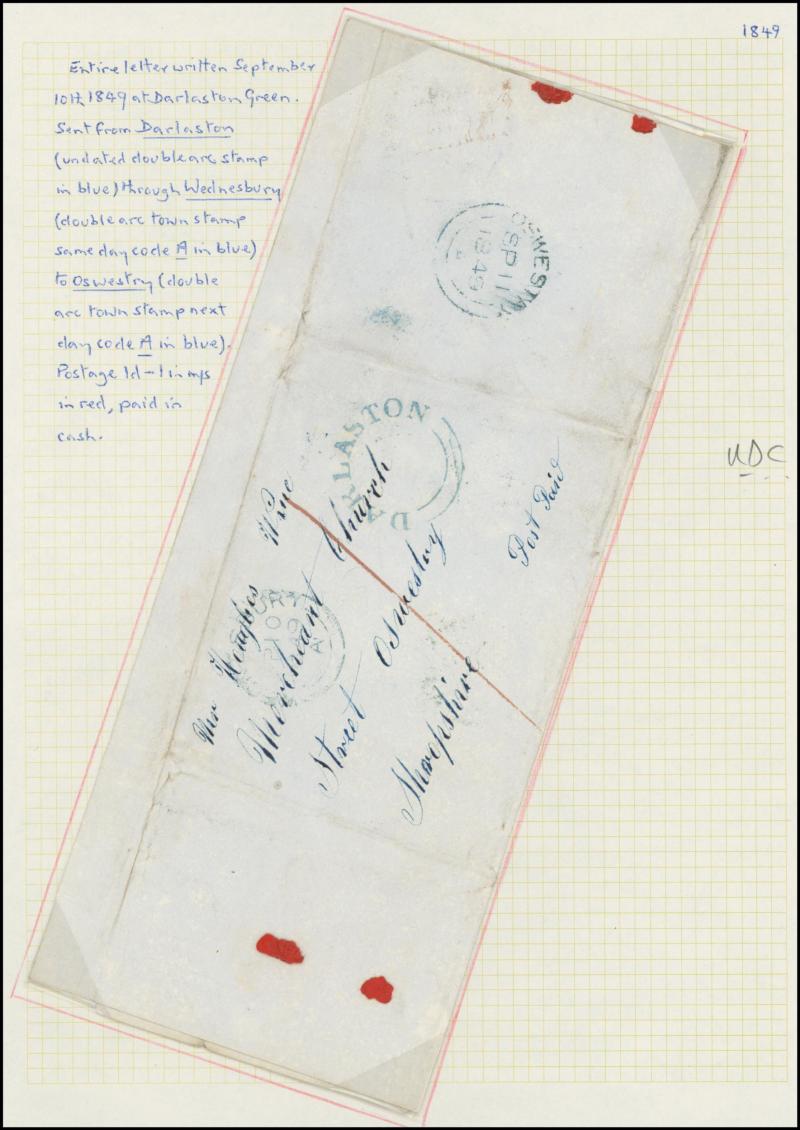 1849
Entire letter written September
10th 1849 at Darlaston Green.
Sent from Darlaston
(undated double arc stamp
in blue) through Wednesbury
(double arc town stamp
same day code A in blue)
to Oswestry (double
arc town stamp next
day code A in blue).
Postage 1d – 1 in mss
in red, paid in
cash.
UDC
OSWESTRY
SP 11
1849
DARLASTON
Mr Hughes Wine
Merchant Church
Street Oswestry
Shropshire
Post Paid
URY
A